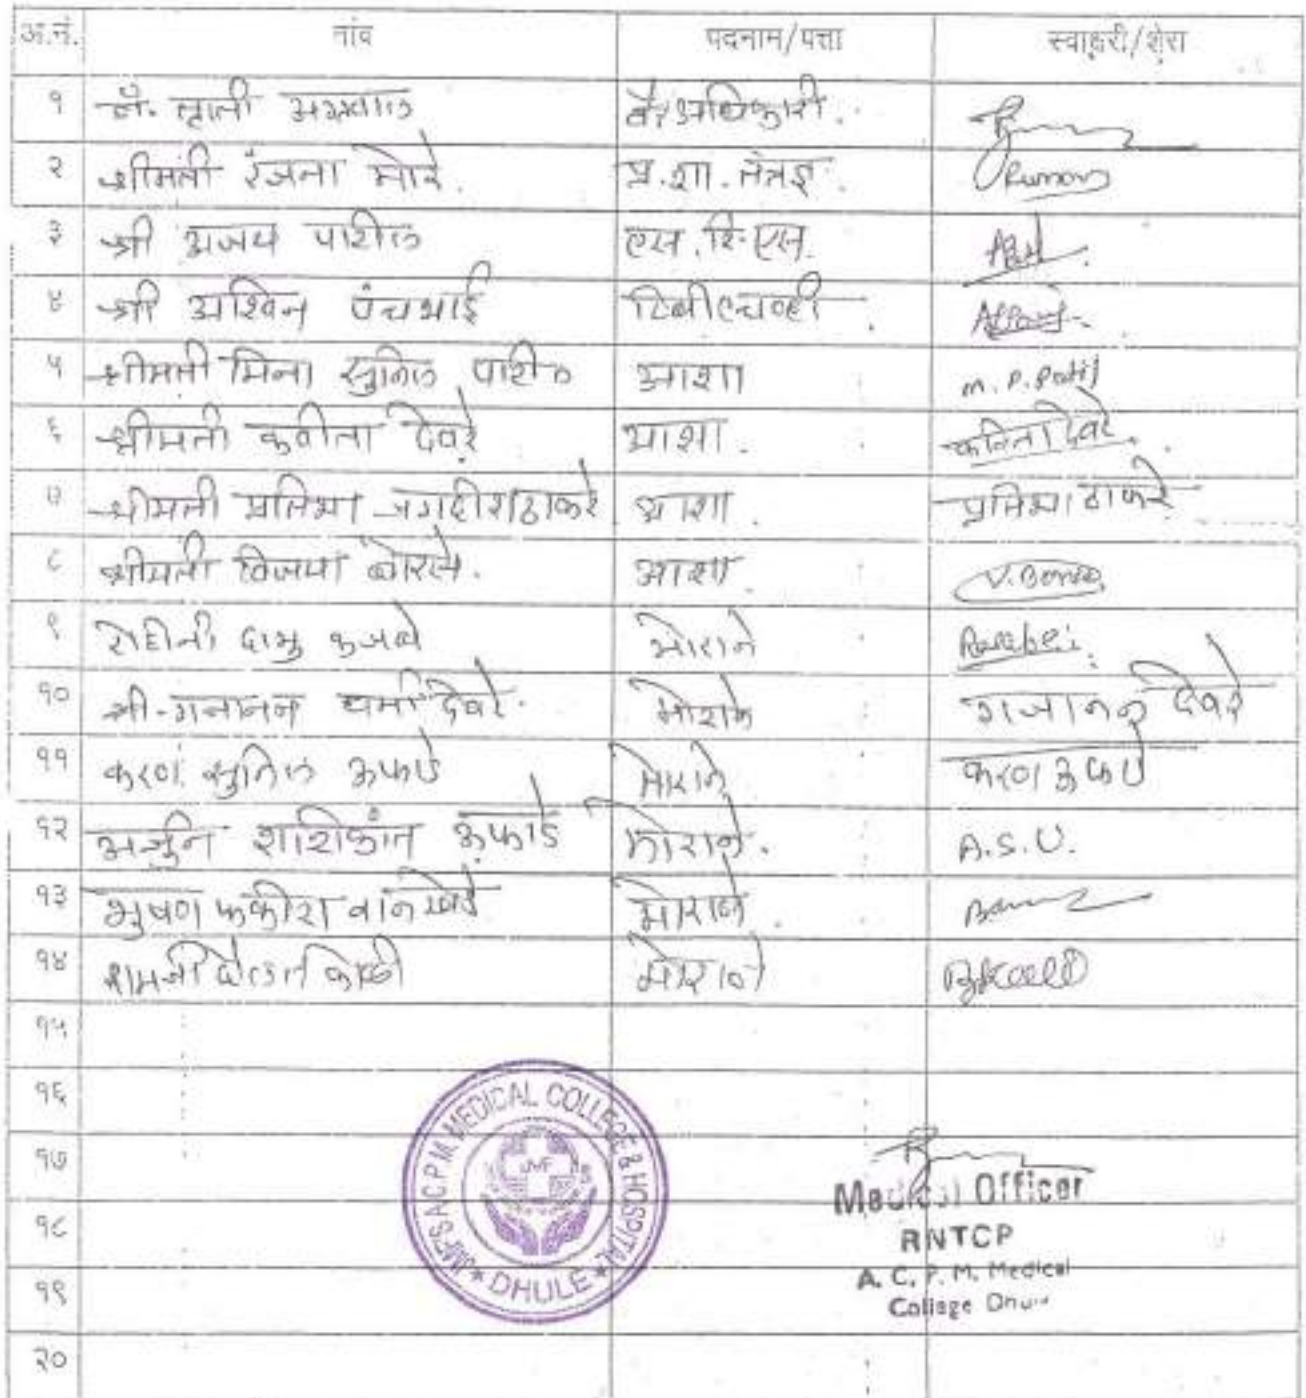 अ.नं. नांव पदनाम/पत्ता स्वाक्षरी/शेरा
१ डॉ. अग्रवाल वै. अधिकारी.
२ श्रीमती रंजना मोरे. प्र.शा. तंत्रज्ञ.
३ श्री अजय पाटील एस.टि.एस.
४ श्री अश्विन पंचभाई टिबीएचव्ही
५ श्रीमती मिना सुनिल पाटील आशा m. P. Patil
६ श्रीमती कवीता देवरे आशा. कविता देवरे.
७ श्रीमती प्रतिभा जगदीश ठाकरे आशा. प्रतिभा ठाकरे
८ श्रीमती विजया बोरसे. आशा V. Borse
९ रोहीनी दामु मोराने
१० श्री. गजानन धर्मा देवरे. मोराने गजानन देवरे
११ करण सुनिल उफाडे मोराने करण उफाडे
१२ अर्जुन शशिकांत उफाडे मोराने. A.S.U.
१३ भुषण फकीरा वानखेडे मोराने.
१४ शामजी दौलत कोळी मोराने
१५
१६
१७
१८
१९
२०
JMF'S A.C.P.M. MEDICAL COLLEGE & HOSPITAL
JMF
* DHULE *
Medical Officer
RNTCP
A. C. P. M. Medical
College Dhule